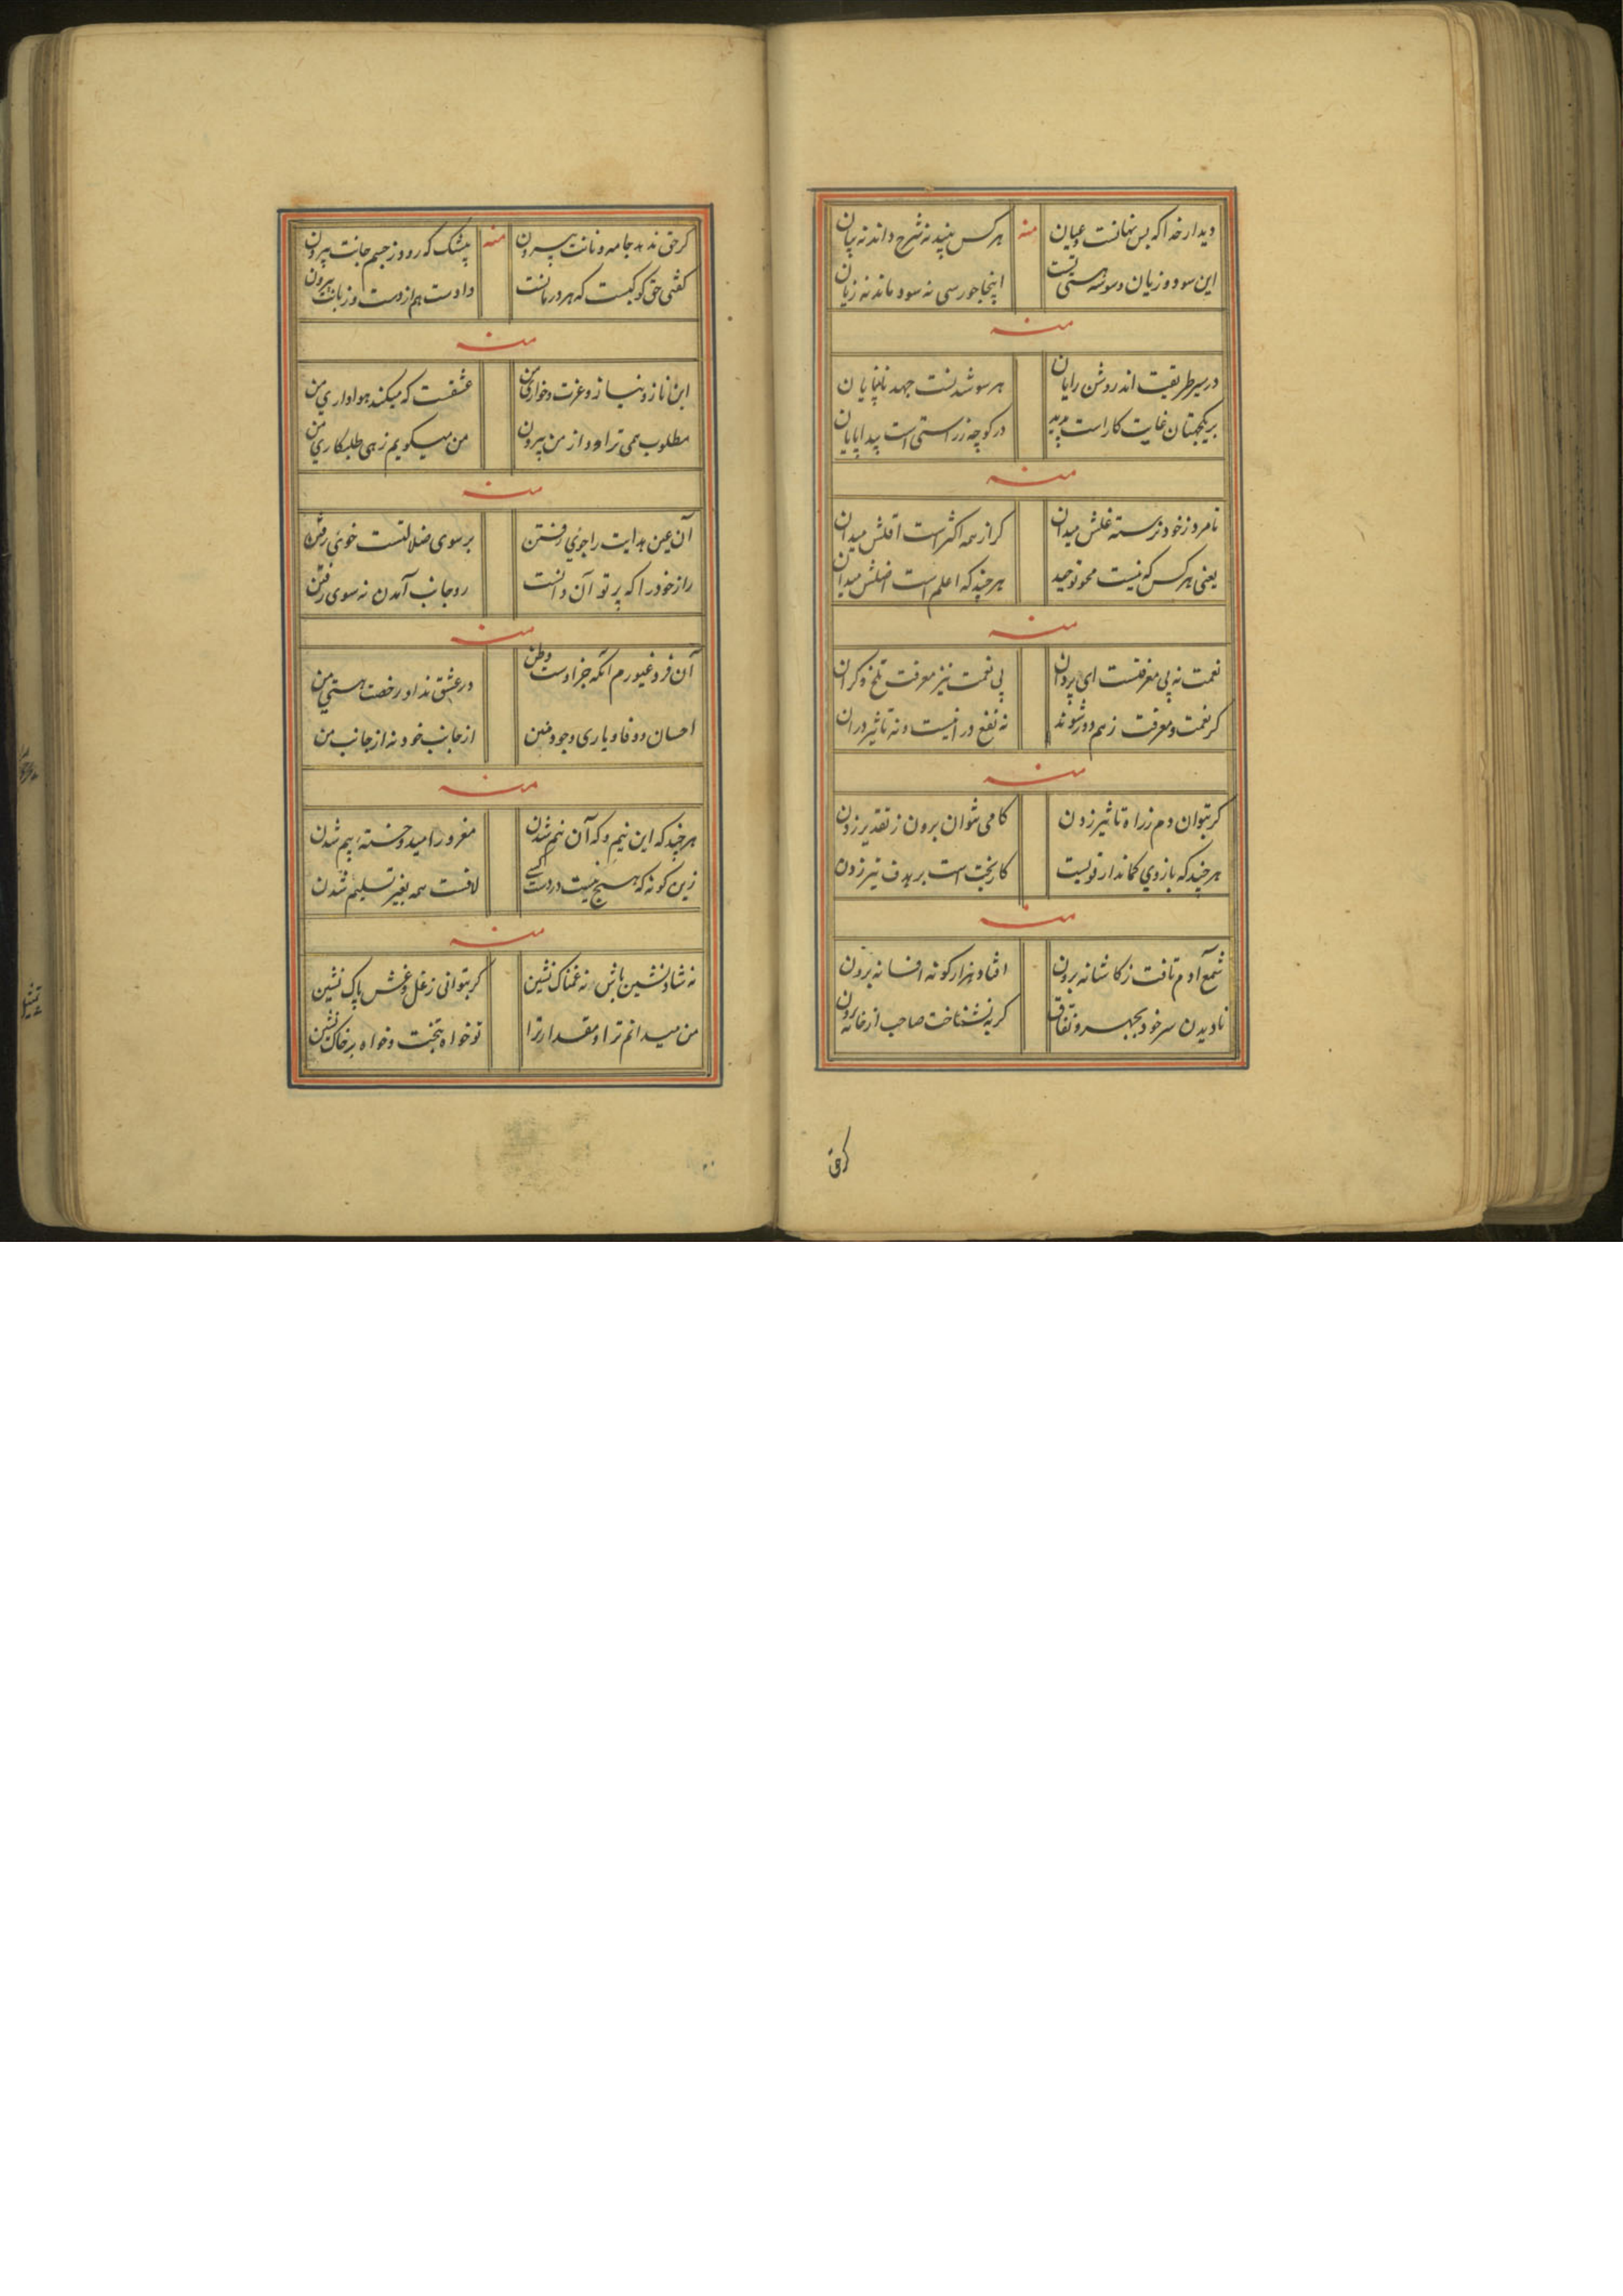 دیدار خدا که بس نهانست و عیان
منه
هر کس بیند نه شرح داند نه بیان
این سود و زیان و سوسهٔ هستی تست
اینجا چو رسی نه سود ماند نه زیان
منه
در سیر طریقت اند روشن رایان
هر سو شدنست جهد نابینایان
بر یکجهتان غایت کار است پدید
در کوچهٔ راستی است پیدا پایان
منه
نامرد ز خود نرسته غلش میدان
گر از همه اکثر است اقلش میدان
یعنی هر کس که نیست محو توحید
هر چند که اعلم است اضلش میدان
منه
نعمت نه بی معرفتست ای پدران
بی نعمت نیز معرفت تلخ و گران
گر نعمت و معرفت ز هم دور شوند
نه نفع در اینست و نه تاثیر در آن
منه
گر بتوان دم ز راه تاثیر زدن
گامی نتوان برون ز تقدیر زدن
هر چند که بازوی کماندار قویست
کار بخت است بر هدف تیر زدن
منه
شمع آدم تافت ز کاشانه برون
افتاد هزار گونه افسانه برون
نادیدن سر خود بجهر و نفاق
گر به نشناخت صاحب از خانه برون
کر حق
گر حق ندهد جامه و نانت بیرون
منه
بیشک که رود ز جسم جانت بیرون
گفتی حق کو کیست که هر در مانست
دادست هم از دست و زبانت بیرون
منه
این ناز و نیاز و عزت و خواری من
عشقست که میکند هواداری من
مطلوب همی تراود از من بیرون
من میگویم زهی طلبکاری من
منه
آن عین هدایت را جوی رفتن
بر سوی ضلالتست خوی رفتن
راز خود را که پرتو آن دانست
رو جانب آمدن نه سوی رفتن
منه
آن فرد غیورم آنکه جز اوست وطن
در عشق نداد رخصت هستی من
احسان و وفا و یاری و جود و منن
از جانب خود نه از جانب من
منه
هر چند که این نیم و که آن نیم شدن
مغرور امید و خستهٔ بیم شدن
زین گونه که هیچ نیست در دست کسی
لافست همه بغیر تسلیم شدن
منه
نه شاد نشین باش نه غمناک نشین
گر بتوانی ز غل و غش پاک نشین
من میدانم ترا و مقدار ترا
تو خواه بتخت و خواه بر خاک نشین